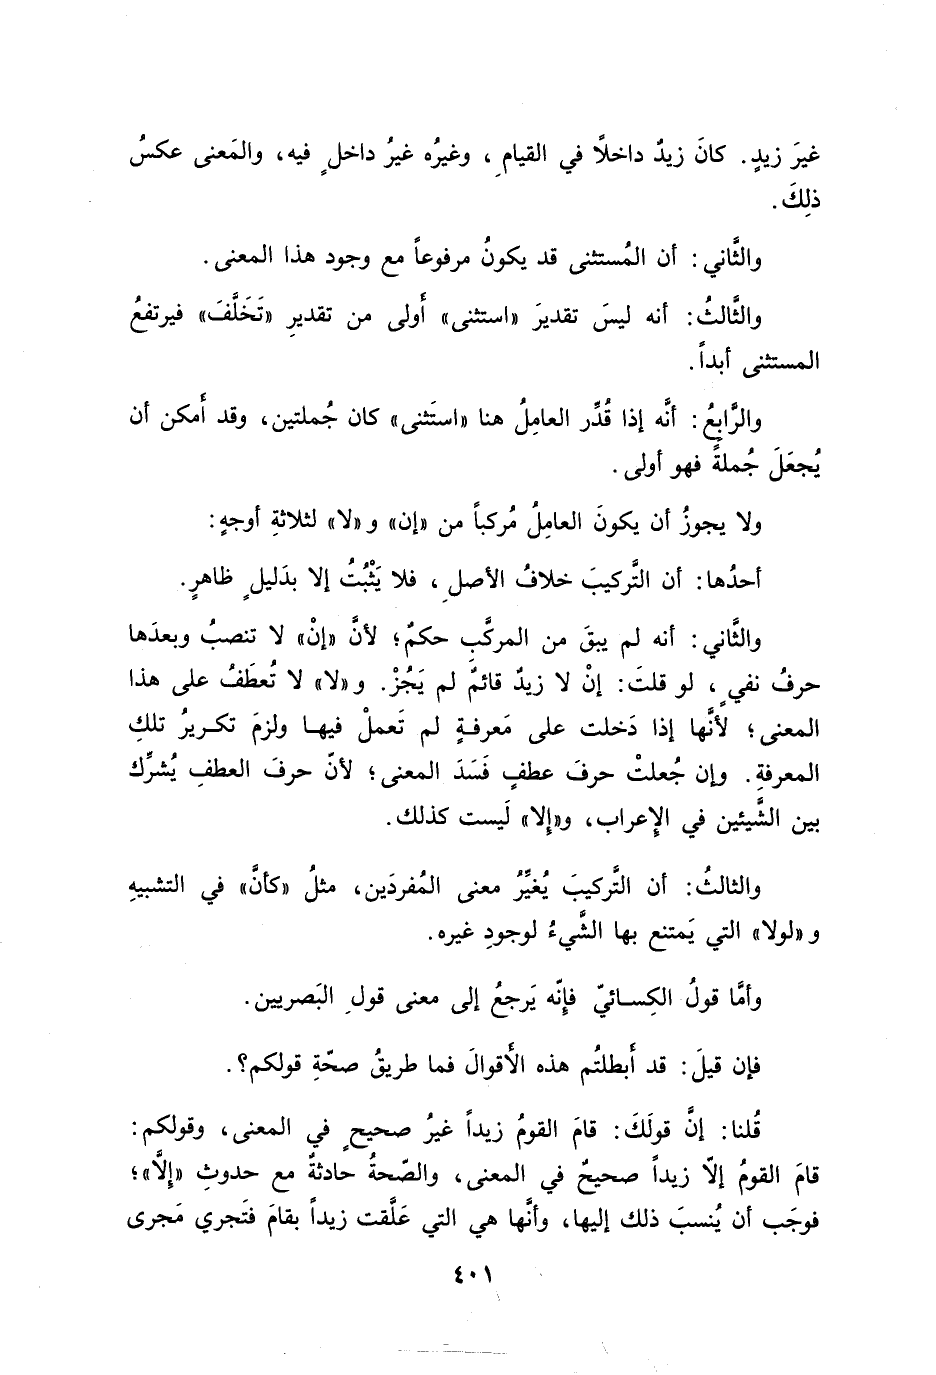 غيرَ زيدٍ. كانَ زيدٌ داخلاً في القيامِ، وغيرُه غيرُ داخلٍ فيه، والمَعنى عكسُ
ذلِكَ.
والثَّاني: أن المُستثنى قد يكونُ مرفوعاً مع وجود هذا المعنى.
والثَّالثُ: أنه ليسَ تقديرَ «استثنى» أَولى من تقديرِ «تَخَلَّفَ» فيرتفعُ
المستثنى أبداً.
والرَّابعُ: أنَّه إذا قُدِّر العامِلُ هنا «استَثنى» كان جُملتين، وقد أَمكن أن
يُجعَلَ جُملةً فهو أولى.
ولا يجوزُ أن يكونَ العامِلُ مُركباً من «إن» و«لا» لثلاثةِ أوجهٍ:
أحدُها: أن التَّركيبَ خلافُ الأصلِ، فلا يَثْبُتُ إلا بدَليلٍ ظاهرٍ.
والثَّاني: أنه لم يبقَ من المركَّبِ حكمٌ؛ لأنَّ «إنْ» لا تنصبُ وبعدَها
حرفُ نفيٍ، لو قلتَ: إنْ لا زيدٌ قائمٌ لم يَجُزْ. و«لا» لا تُعطَفُ على هذا
المعنى؛ لأنَّها إذا دَخلت على مَعرفةٍ لم تَعملْ فيها ولزمَ تكريرُ تلكِ
المعرفةِ. وإن جُعلتْ حرفَ عطفٍ فَسَدَ المعنى؛ لأنّ حرفَ العطفِ يُشرِّك
بين الشَّيئين في الإِعراب، و«إلا» لَيست كذلك.
والثالثُ: أن التَّركيبَ يُغيِّرُ معنى المُفردَين، مثلُ «كأنَّ» في التشبيهِ
و«لولا» التي يَمتنع بها الشَّيءُ لوجودِ غيره.
وأمَّا قولُ الكِسائيّ فإنّه يَرجعُ إلى معنى قولِ البَصريين.
فإن قيلَ: قد أَبطلتُم هذه الأَقوالَ فما طريقُ صحّةِ قولكم؟.
قُلنا: إنَّ قولَكَ: قامَ القومُ زيداً غيرُ صحيحٍ في المعنى، وقولكم:
قامَ القومُ إلاّ زيداً صحيحٌ في المعنى، والصّحةُ حادثةٌ مع حدوثِ «إلَّا»؛
فوجَب أن يُنسبَ ذلك إليها، وأنَّها هي التي عَلَّقت زيداً بقامَ فَتَجري مَجرى
٤٠١